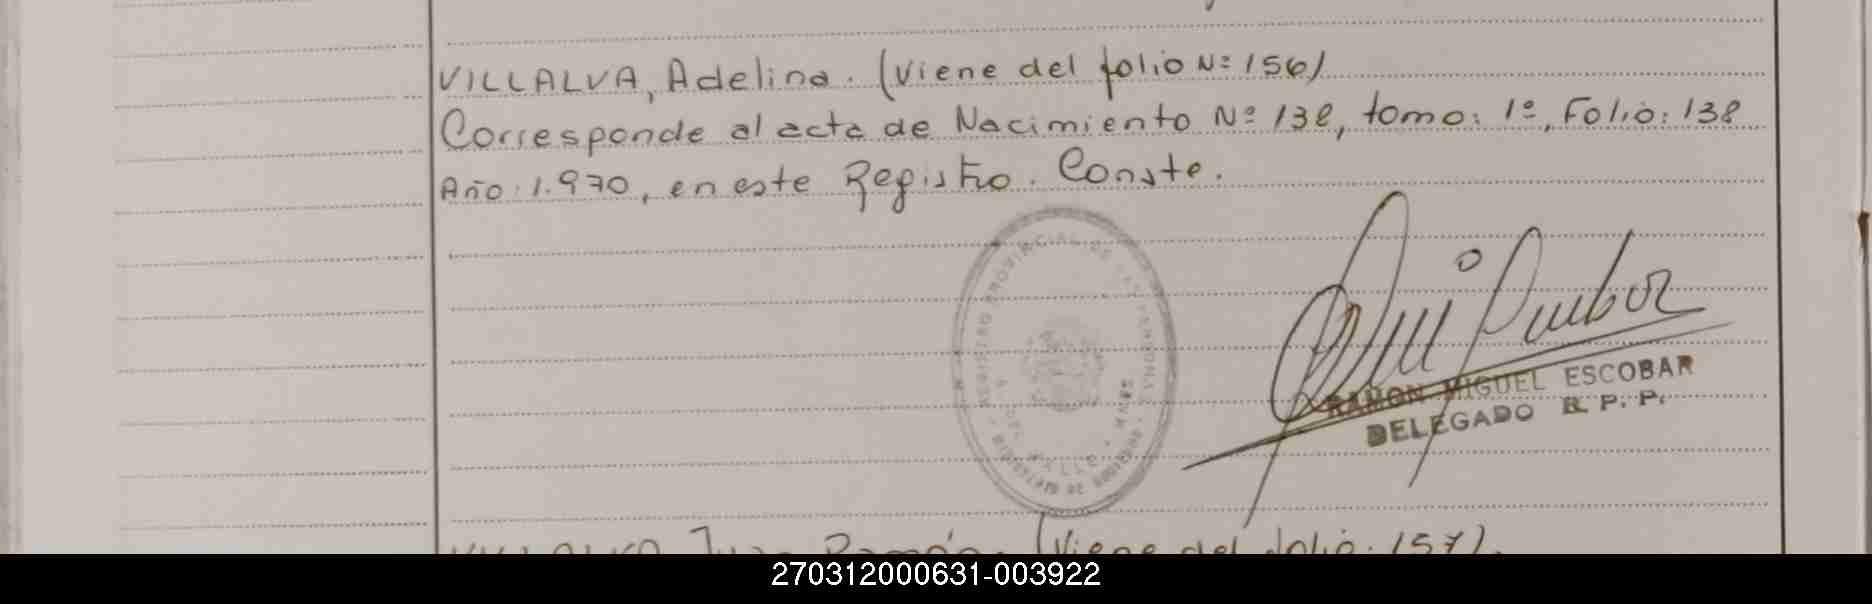 VILLALVA, Adelina. (Viene del folio Nº 156)
Corresponde al acta de Nacimiento Nº 138, tomo: 1º, Folio: 138
Año: 1.970, en este Registro. Conste.
REGISTRO PROVINCIAL DE LAS PERSONAS
RAMON MIGUEL ESCOBAR
DELEGADO R. P. P.
Juan Ramón. (Viene del folio: 157).
270312000631-003922